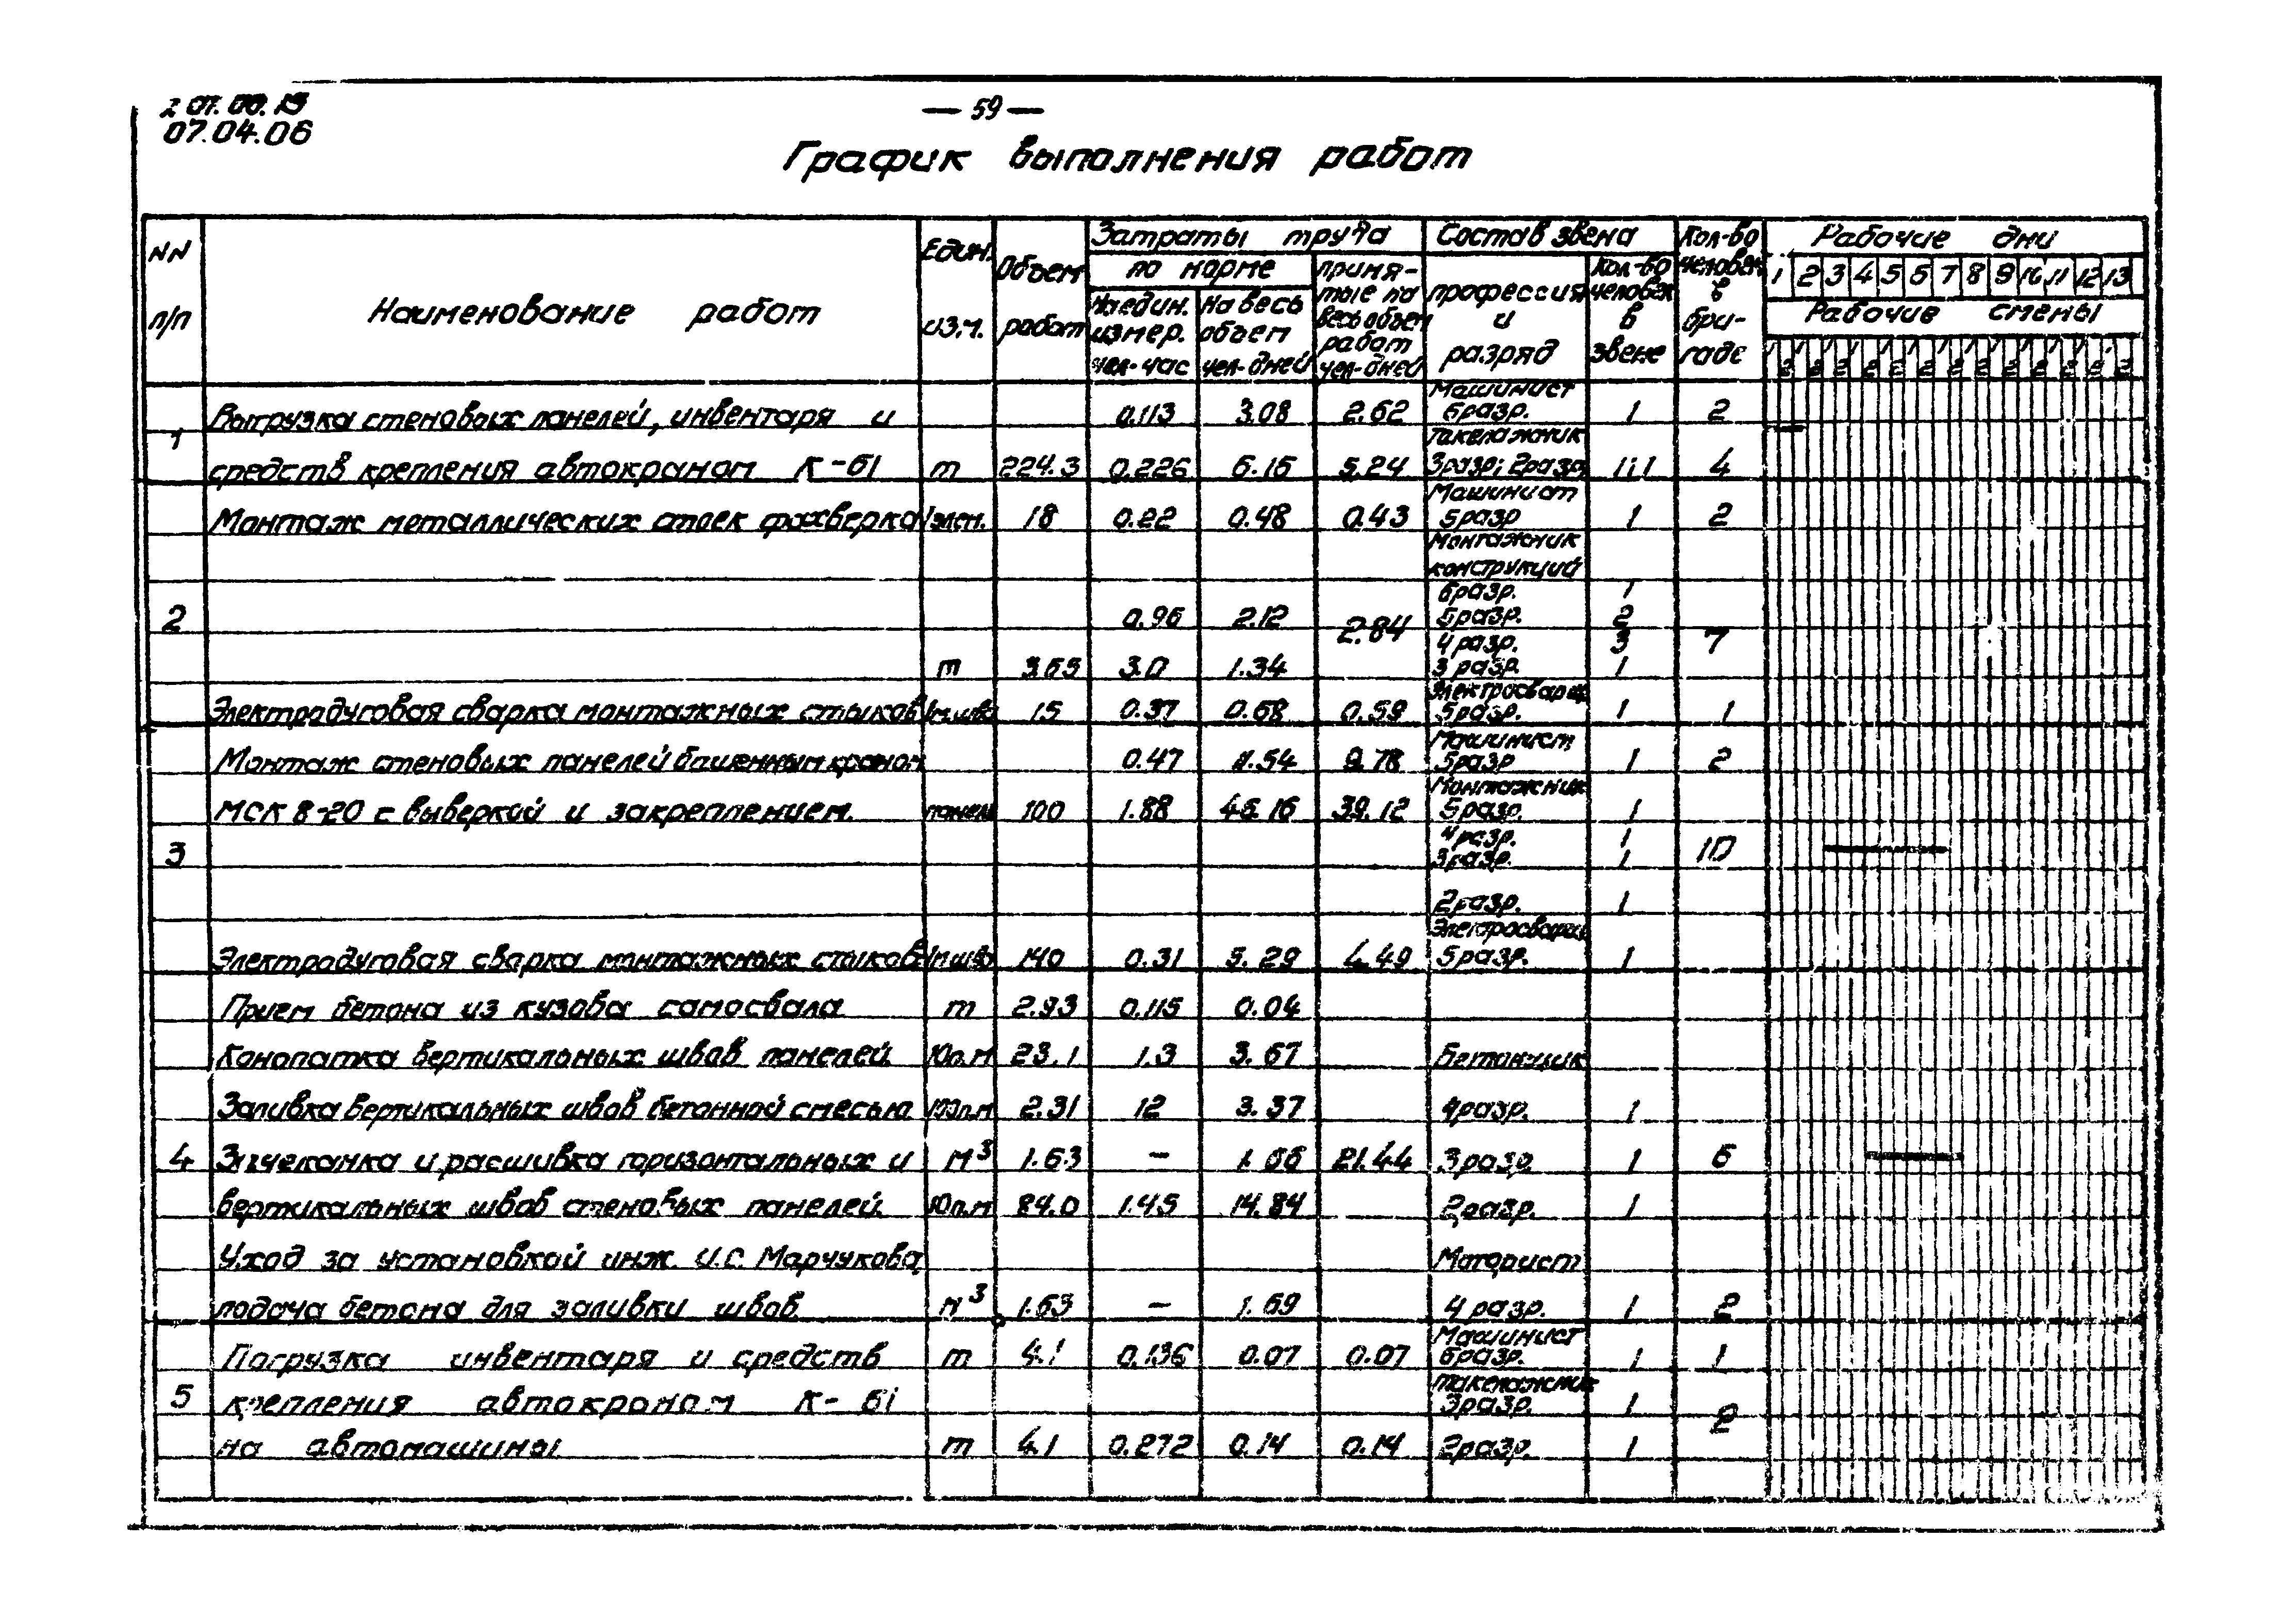 07.04.06
— 59 —
График выполнения работ
NN п/п
Наименование работ
Един. изм.
Объем работ
Затраты труда
по норме
На един. измер. чел-час
На весь объем чел-дней
приня-тые на весь объем работ чел-дней
Состав звена
профессия и разряд
Кол-во человек в звене
Кол-во человек в бри-гаде
Рабочие дни
1 2 3 4 5 6 7 8 9 10 11 12 13
Рабочие смены
1 2 1 2 1 2 1 2 1 2 1 2 1 2 1 2 1 2 1 2 1 2 1 2 1 2
Машинист
1 Выгрузка стеновых панелей, инвентаря и 0.113 3.08 2.62 6разр. 1 2
Такелажник
средств крепления автокраном К-61 т 224.3 0.226 6.16 5.24 3разр; 2разр, 1;1 4
Машинист
Монтаж металлических стоек фахверка 1 элем. 18 0.22 0.48 0.43 5разр 1 2
Монтажник
конструкций
6разр. 1
2 0.96 2.12 2.84 5разр. 2
4разр. 3 7
т 3.0 1.34 3 разр. 1
Электросварщ.
Электродуговая сварка монтажных стыков 1м шва 15 0.37 0.68 0.59 5разр. 1 1
Машинист
Монтаж стеновых панелей башенным краном 0.47 9.78 5разр 1 2
Монтажник
МСК 8-20 с выверкой и закреплением. панель 100 1.88 46.16 39.12 5разр. 1
4разр. 1
3 3разр. 1 10
2разр. 1
Электросварщ
Электродуговая сварка монтажных стыков 1м шва 140 0.31 5.29 4.49 5разр. 1
Прием бетона из кузова самосвала т 2.93 0.115 0.04
Конопатка вертикальных швов панелей 10п.м 23.1 1.3 3.67 Бетонщик
Заливка вертикальных швов бетонной смесью 100п.м 2.31 12 3.37 4разр. 1
4 Зачеканка и расшивка горизонтальных и м³ 1.63 — 21.44 3разр 1 6
вертикальных швов стеновых панелей. 10п.м 84.0 1.45 14.84 2разр. 1
Уход за установкой инж. И.С. Марчукова, Моторист
подача бетона для заливки швов м³ 1.63 — 1.69 4 разр. 1 2
Машинист
Погрузка инвентаря и средств т 4.1 0.136 0.07 0.07 6разр. 1 1
Такелажник
5 крепления автокраном К-61 3разр. 1
2
на автомашины т 4.1 0.272 0.14 0.14 2разр. 1